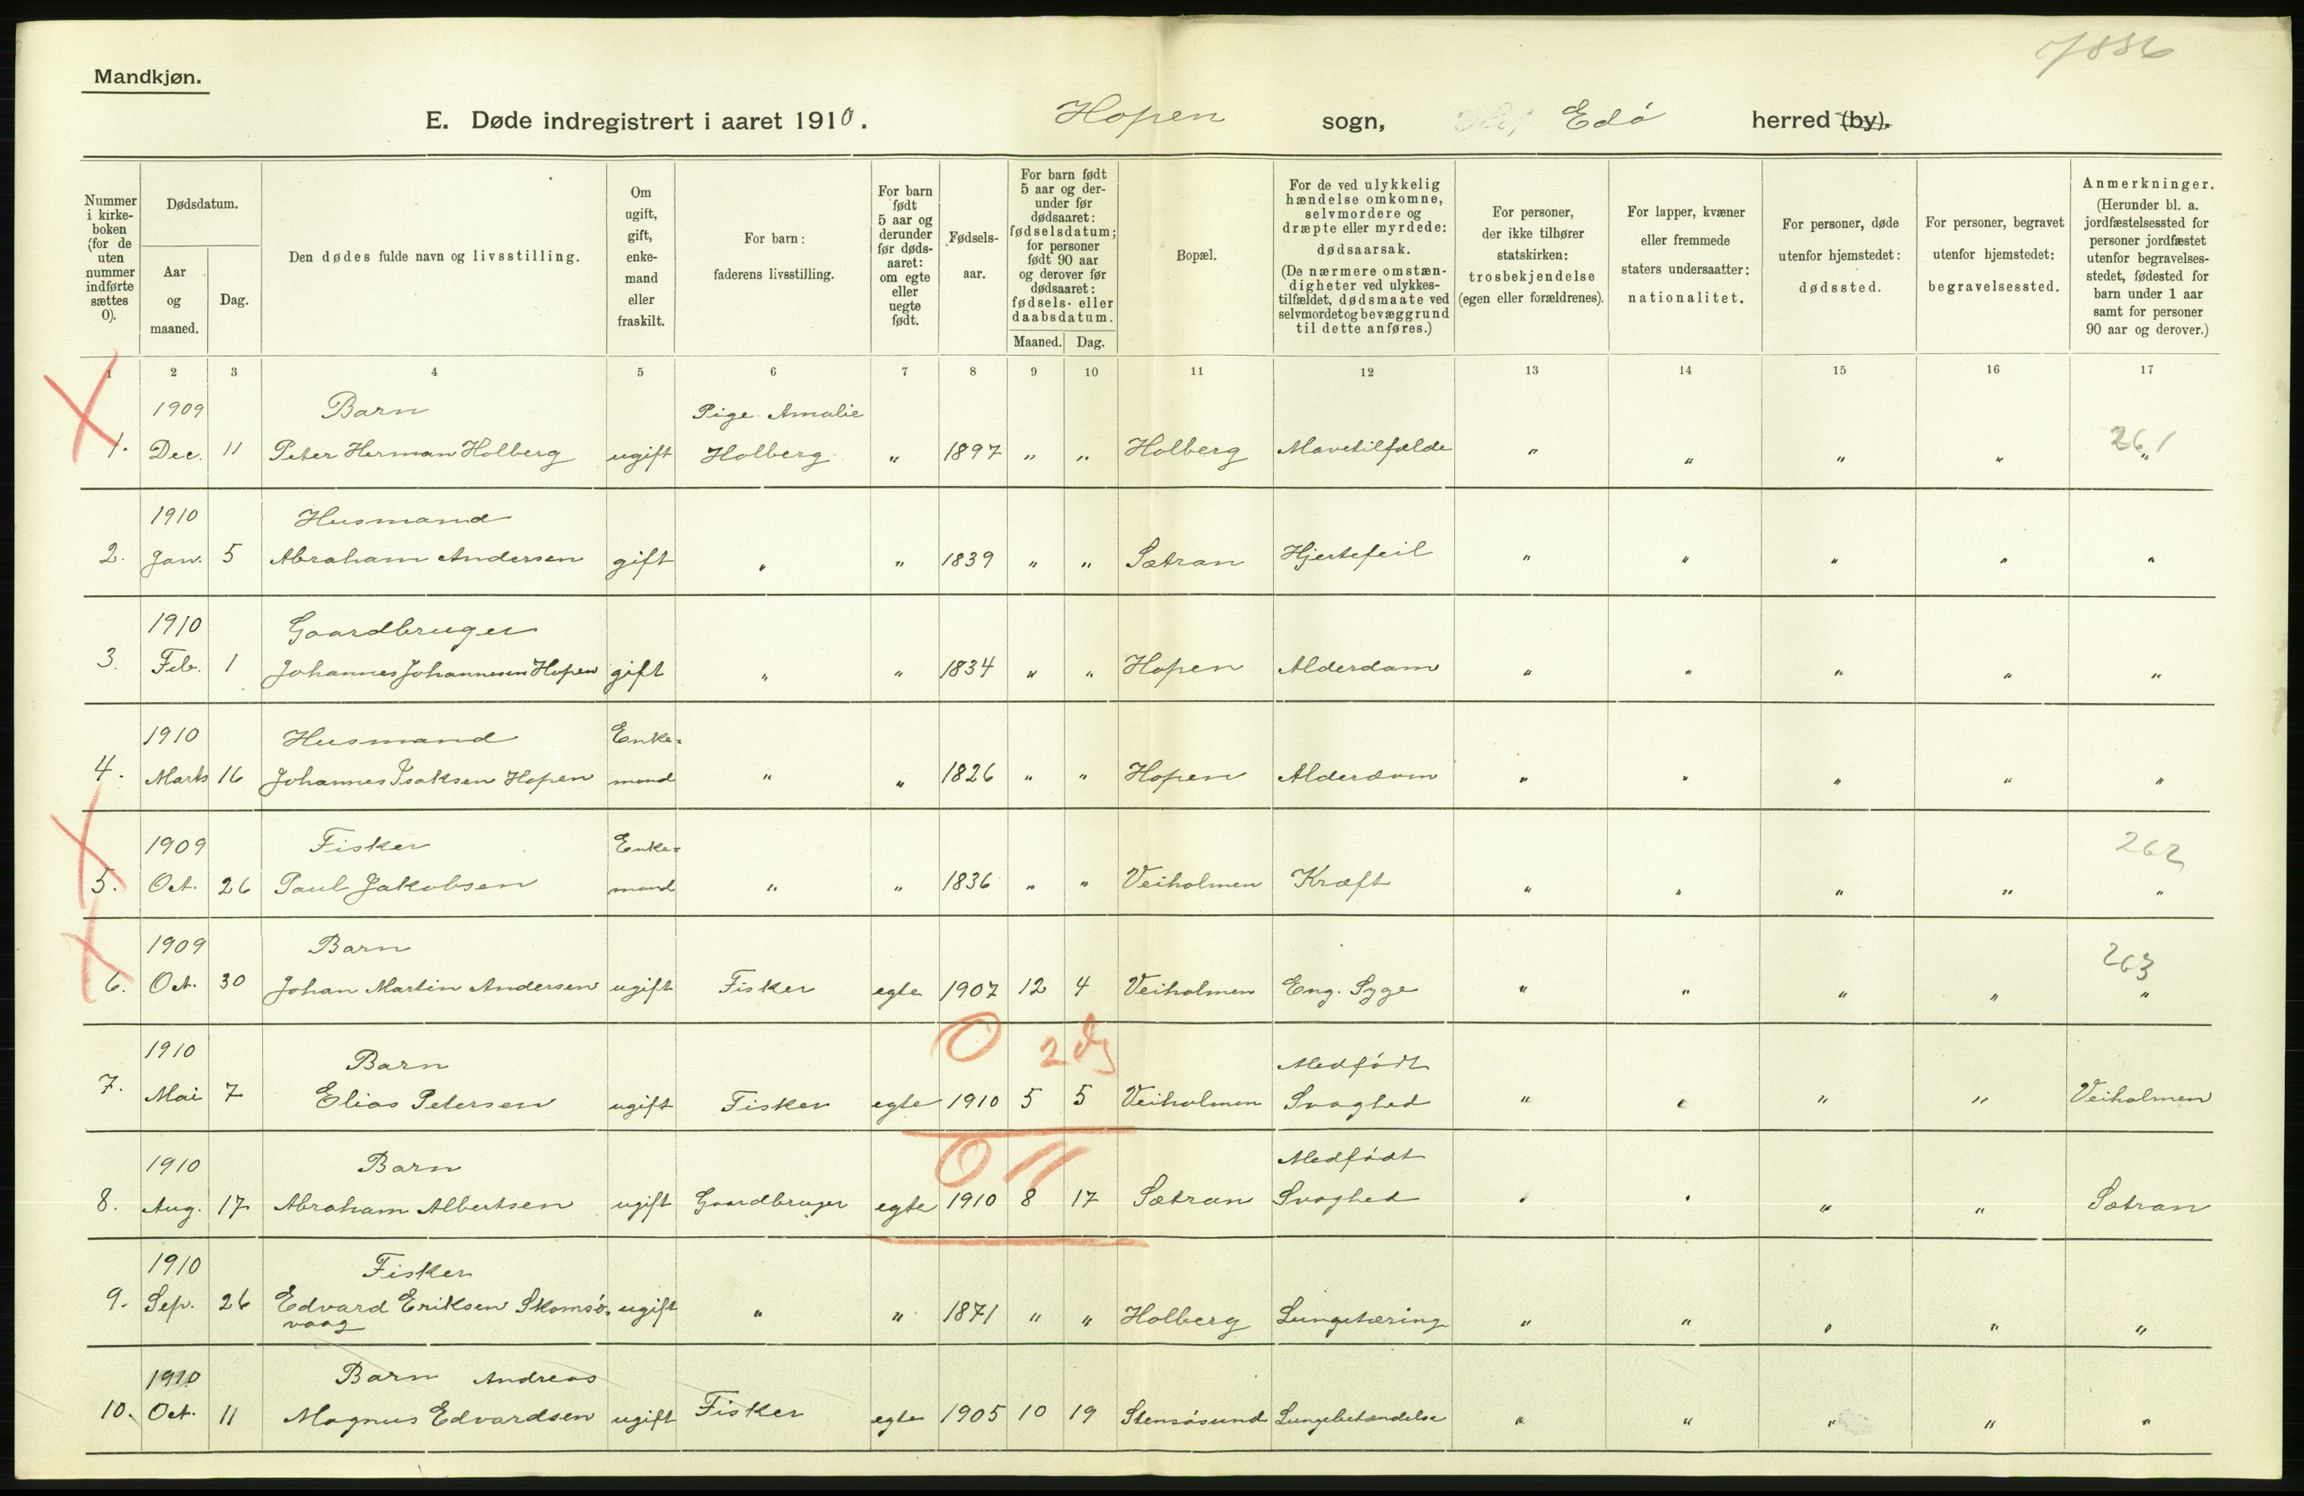 7886
Mandkjøn.
E. Døde indregistrert i aaret 1910. Hopen sogn, Edø herred (by).
Nummer i kirke-boken (for de uten nummer indførte sættes 0).
Dødsdatum.
Aar og maaned.
Dag.
Den dødes fulde navn og livsstilling.
Om ugift, gift, enke-mand eller fraskilt.
For barn: faderens livsstilling.
For barn født 5 aar og derunder før døds-aaret: om egte eller uegte født.
Fødsels-aar.
For barn født 5 aar og der-under før dødsaaret: fødselsdatum; for personer født 90 aar og derover før dødsaaret: fødsels- eller daabsdatum.
Maaned. Dag.
Bopæl.
For de ved ulykkelig hændelse omkomne, selvmordere og dræpte eller myrdede: dødsaarsak. (De nærmere omstæn-digheter ved ulykkes-tilfældet, dødsmaate ved selvmordet og bevæggrund til dette anføres.)
For personer, der ikke tilhører statskirken: trosbekjendelse (egen eller forældrenes).
For lapper, kvæner eller fremmede staters undersaatter: nationalitet.
For personer, døde utenfor hjemstedet: dødssted.
For personer, begravet utenfor hjemstedet: begravelsessted.
Anmerkninger. (Herunder bl. a. jordfæstelsessted for personer jordfæstet utenfor begravelses-stedet, fødested for barn under 1 aar samt for personer 90 aar og derover.)
1 2 3 4 5 6 7 8 9 10 11 12 13 14 15 16 17
1909 Barn Pige Amalie 261
1. Dec. 11 Peter Herman Holberg ugift Holberg " 1897 " " Holberg Mavetilfælde " " " " "
1910 Husmand
2. Jan. 5 Abraham Andersen gift " " 1839 " " Sætran Hjertefeil " " " " "
1910 Gaardbruger
3. Feb. 1 Johannes Johannesen Hopen gift " " 1834 " " Hopen Alderdom " " " " "
1910 Husmand Enke=
4. Marts 16 Johannes Isaksen Hopen mand " " 1826 " " Hopen Alderdom " " " " "
1909 Fisker Enke= 262
5. Oct. 26 Paul Jakobsen mand " " 1836 " " Veiholmen Kræft " " " " "
1909 Barn 263
6. Oct. 30 Johan Martin Andersen ugift Fisker egte 1907 12 4 Veiholmen Eng. Syge " " " " "
1910 Barn 0 2 dg Medfødt
7. Mai 7 Elias Petersen ugift Fisker egte 1910 5 5 Veiholmen Svaghed " " " " Veiholmen
1910 Barn 0 11 Medfødt
8. Aug. 17 Abraham Albertsen ugift Gaardbruger egte 1910 8 17 Sætran Svaghed " " " " Sætran
1910 Fisker
9. Sep. 26 Edvard Eriksen Skomsø= ugift " " 1871 " " Holberg Lungetæring " " " " "
vaag
1910 Barn Andreas
10. Oct. 11 Magnus Edvardsen ugift Fisker egte 1905 10 19 Stensøsund Lungebetændelse " " " " "